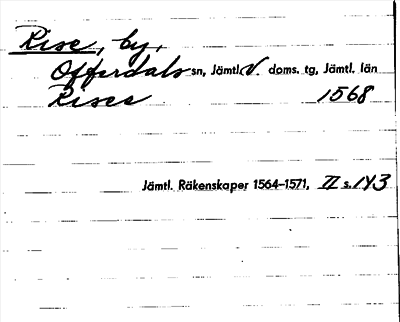 Rise, by,
Offerdals sn, Jämtl. V. doms. tg, Jämtl. län
Rises 1568
Jämtl. Räkenskaper 1564–1571, II s. 143